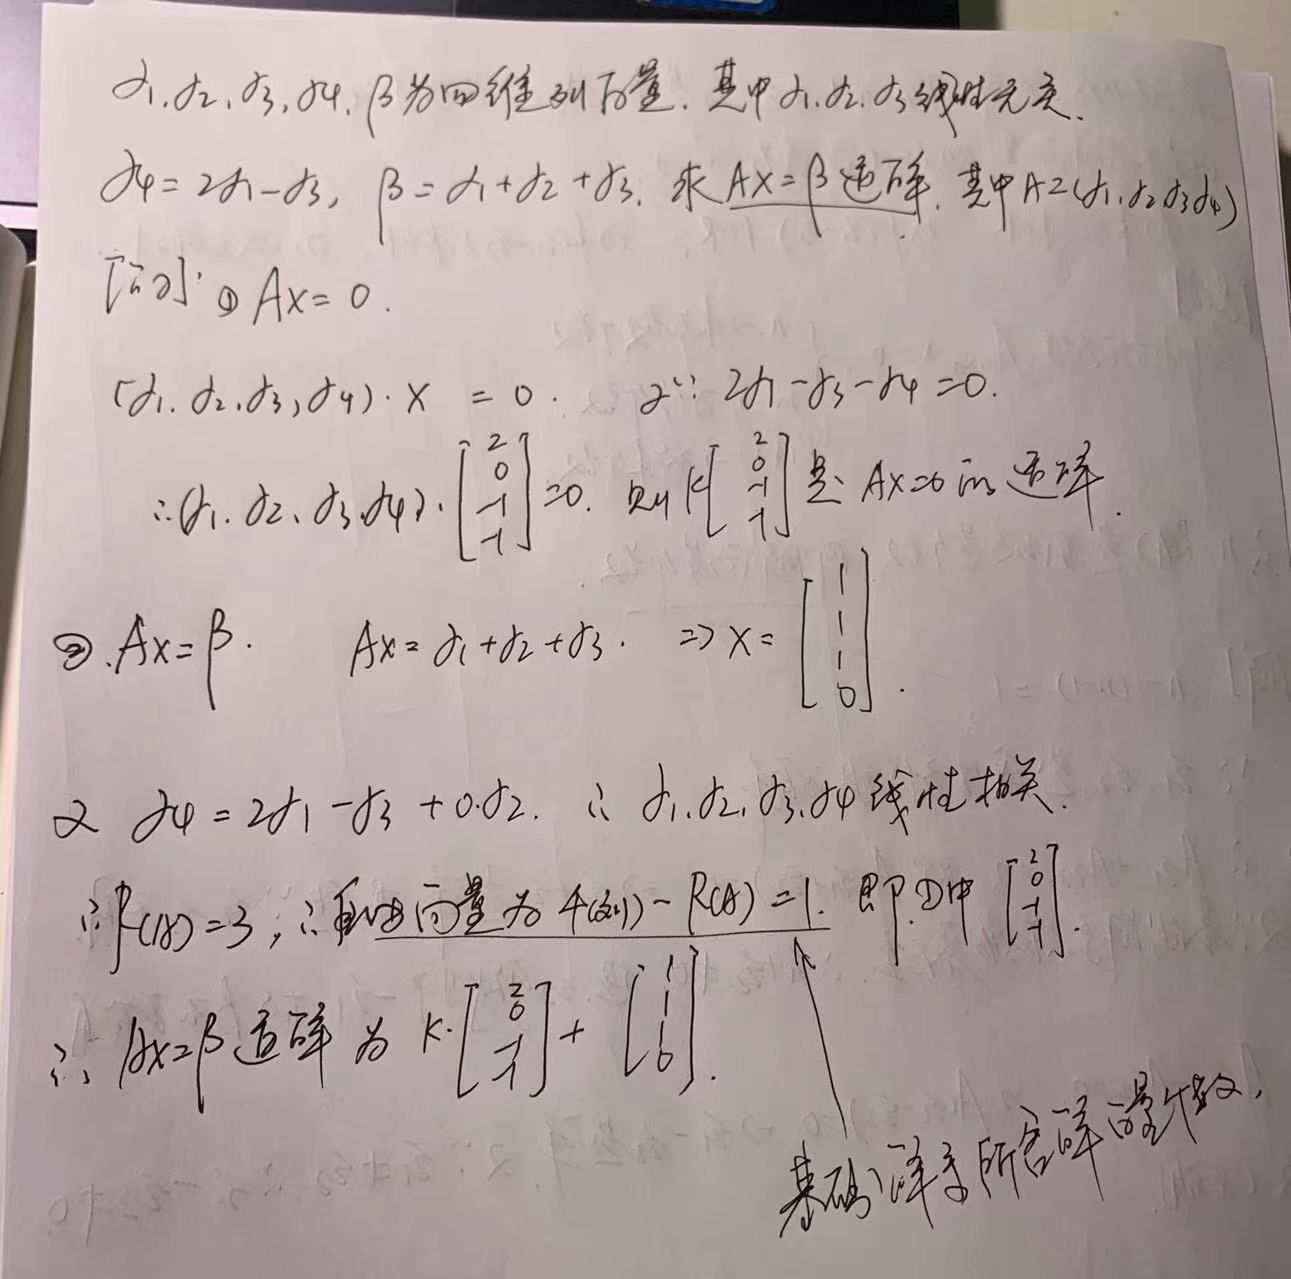 α₁.α₂、α₃、α4. β为四维列向量. 其中α₁.α₂.α₃线性无关.
α4=2α₁-α₃, β=α₁+α₂+α₃. 求AX=β通解. 其中A=(α₁.α₂α₃α4)
① AX=0.
(α₁.α₂、α₃,α4)·X = 0. 又∵ 2α₁-α₃-α4=0.
∴(α₁.α₂、α₃.α4)·[2 0 -1 -1]=0. 则 K[2 0 -1 -1]是 AX=0的通解.
②.AX=β. AX=α₁+α₂+α₃. => X=[1 1 1 0].
又 α4=2α₁-α₃+0·α₂. ∴ α₁.α₂.α₃.α4线性相关.
∴R(A)=3, ∴ 向量为 4 -R(A)=1. 即 ①中[2 0 -1 -1].
∴ AX=β通解为 K·[2 0 -1 -1]+[1 1 1 0].
基础解系所含解向量个数.